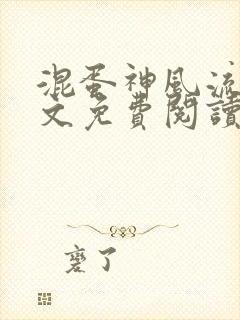 混蛋神風流
文免費閱讀
䶮了